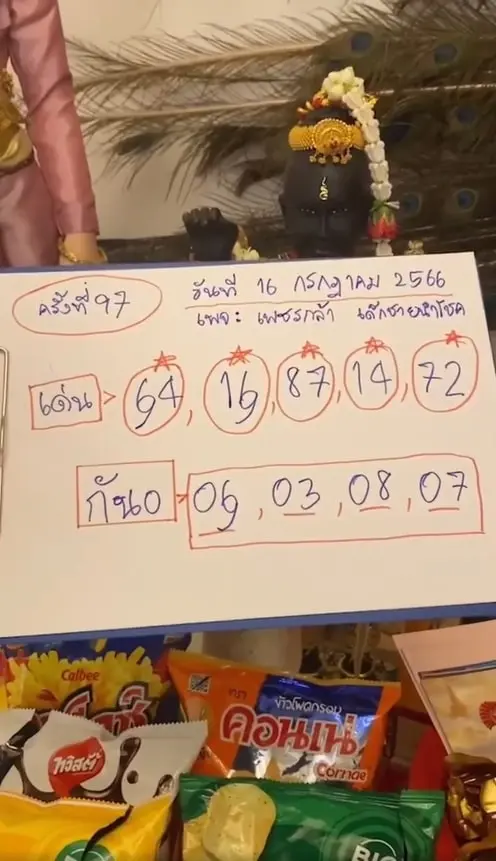 ครั้งที่ 97
วันที่ 16 กรกฎาคม 2566
เพจ: เพชรกล้า เด็กชายนำโชค
เด่น > 64, 16, 87, 14, 72
กัน0 06, 03, 08, 07
Calbee
ทวิสตี้
ตรา
ข้าวโพดกรอบ
คอนเน่
Cornae
BIG